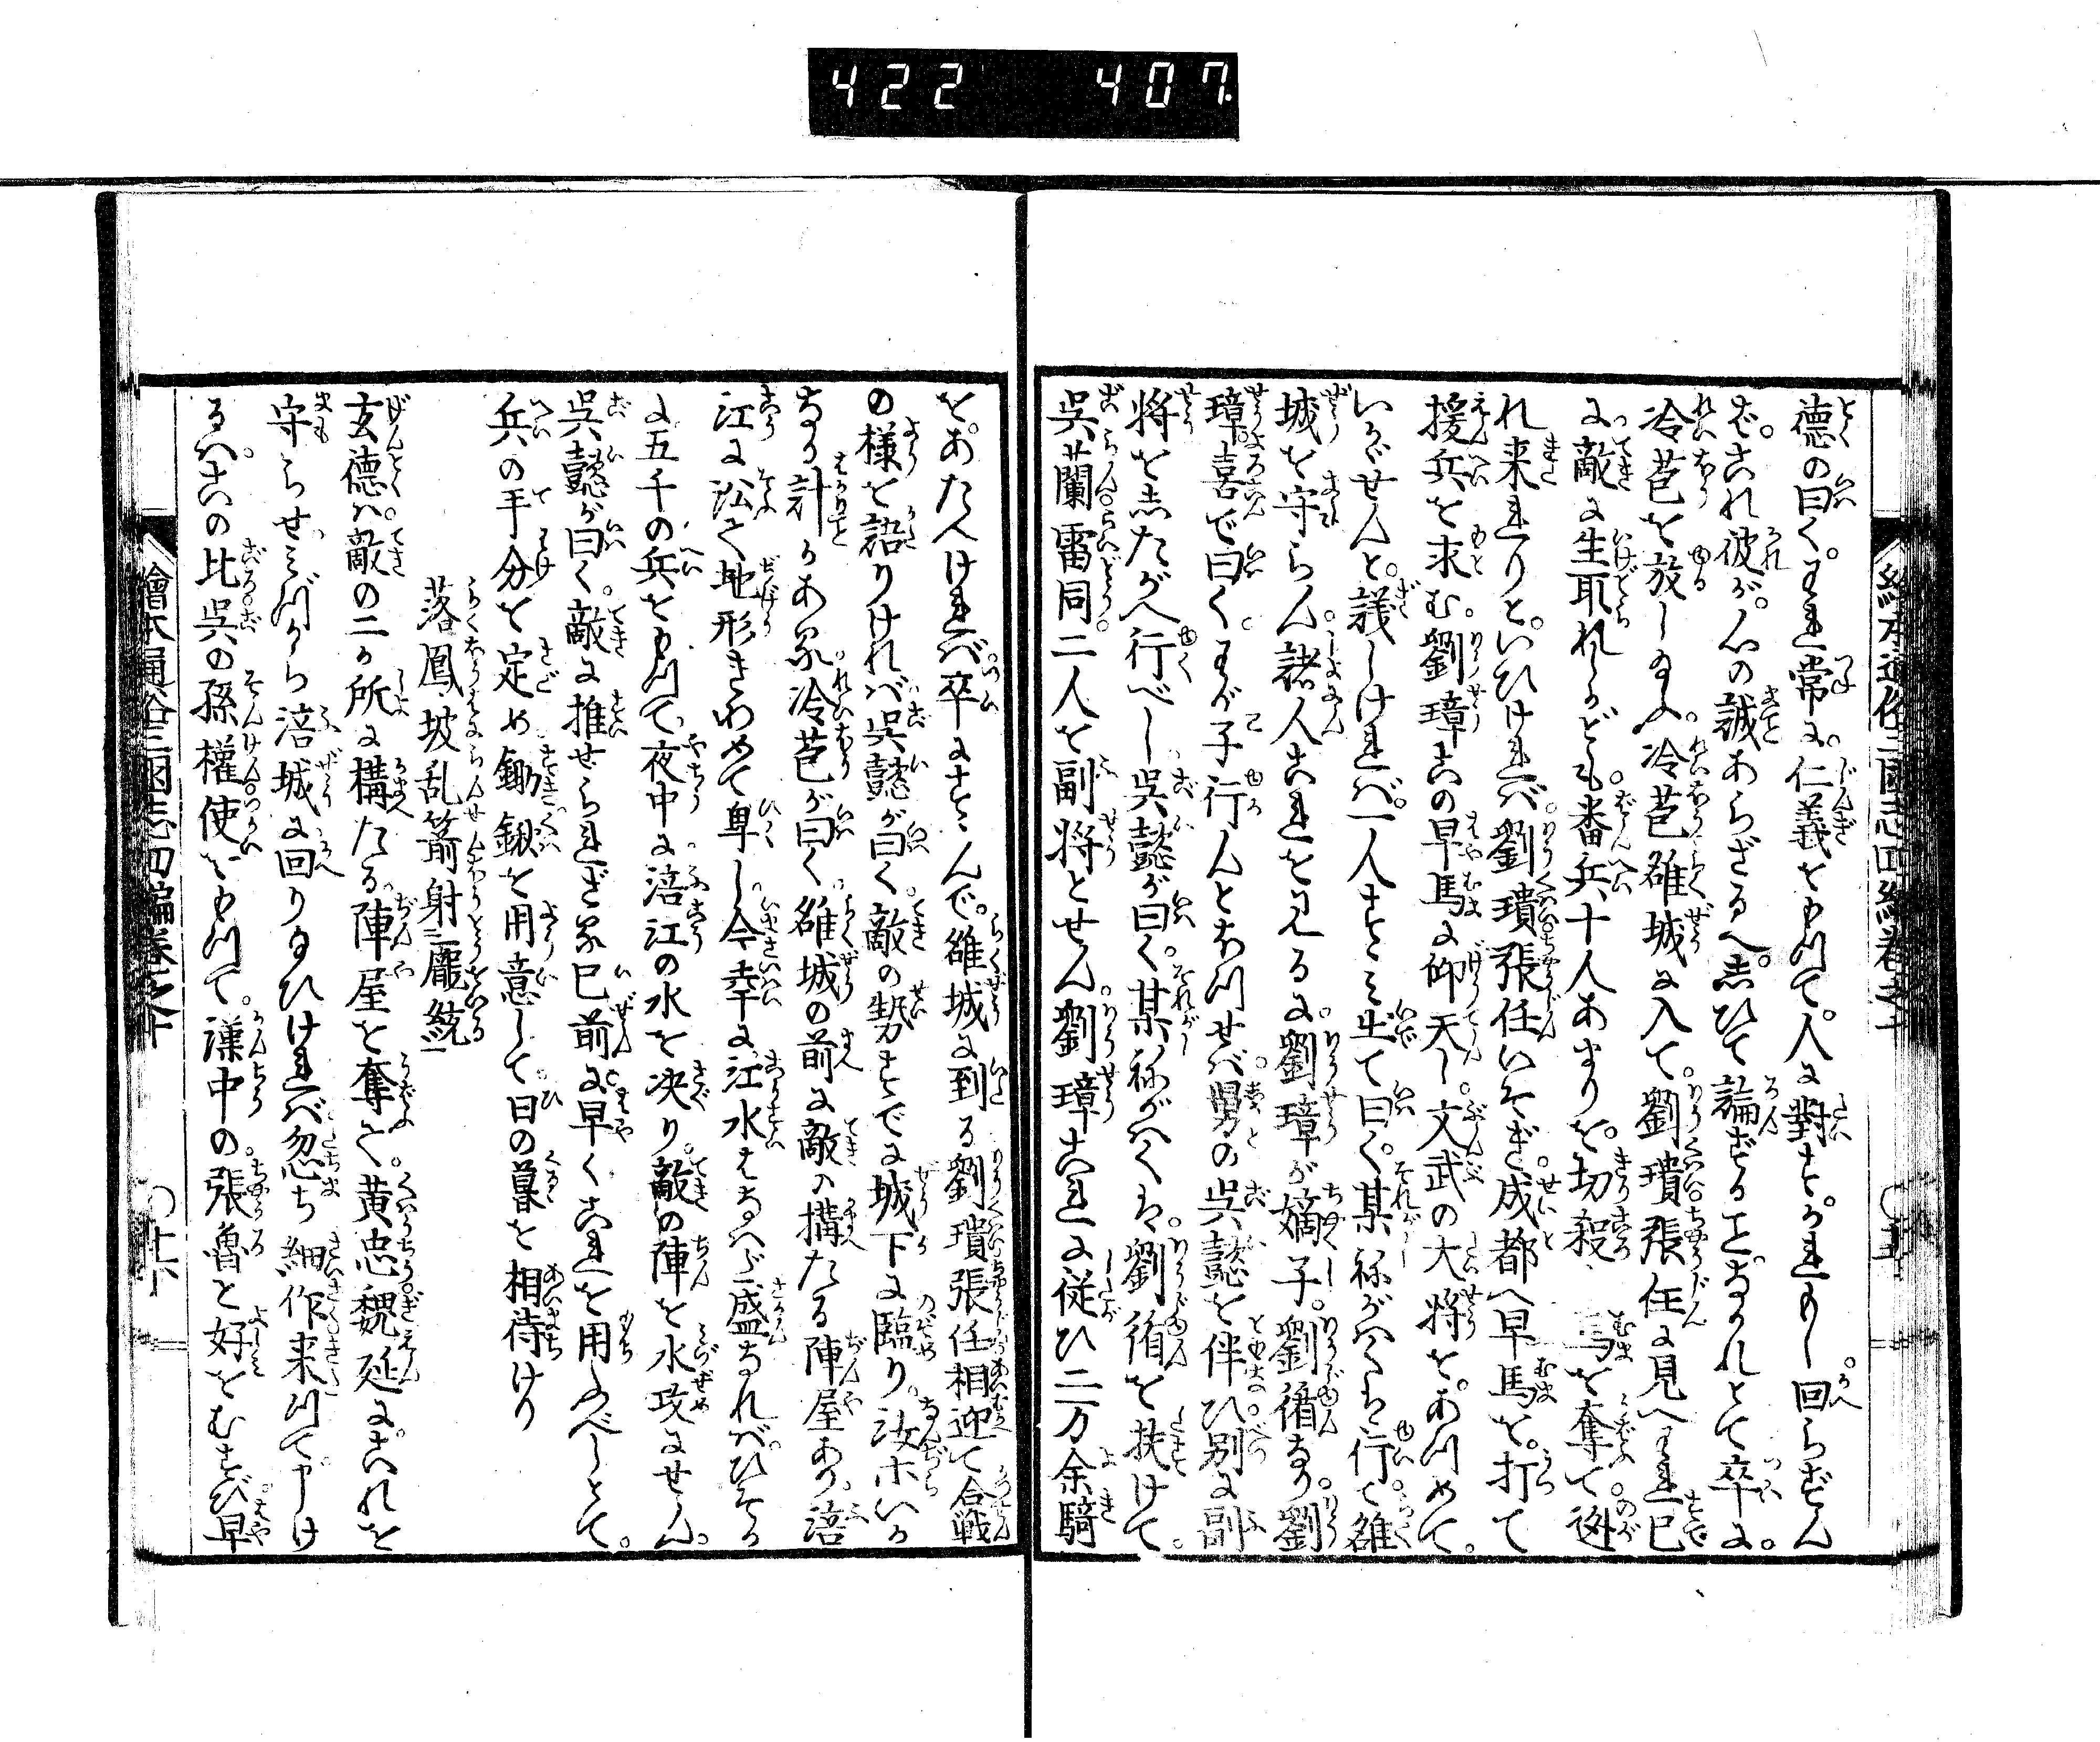 422 407
繪本通俗三國志四編卷之十
德の曰く。われ常に。仁義をもつて。人に對す。かれもし回らずん
ば。これ彼が。心の誠あらざるへ。しひて論ずる𪜈。なかれとて卒に。
冷苞を放しめ。冷苞雒城に入て。劉璝張任に見へ。われ已
に敵に生取れしかども。番兵十人あまりを。切殺。馬を奪て。迯
れ来れりと。いひければ。劉璝張任いそぎ。成都へ早馬を。打て
援兵を求む。劉璋この早馬に仰天し。文武の大将を。あつめて。
いかゞせんと。議しければ。一人すゝみ出て曰く。某ねがハくハ行て雒
城を守らん。諸人これを見るに。劉璋が嫡子。劉循なり。劉
璋喜で曰く。わが子行んとおつせば。男の呉懿を伴ひ別に副
将をしたがへ行べし。呉懿が曰く。某ねがハくハ。劉循を扶けて。
呉蘭雷同。二人を副将とせん。劉璋これに従ひ二万余騎
をあたへければ。卒にすゝんで。雒城に到る。劉璝張任相迎て合戦
の様を語りければ。呉懿が曰く。敵の勢すでに城下に臨り。汝ホいか
なる計かある。冷苞が曰く。雒城の前に敵の構たる陣屋あり。涪
江に㳂て地形きわめて卑し。今幸に江水はなハだ盛なれば。ひそか
に五千の兵をもつて。夜中に涪江の水を决り。敵の陣を水攻にせん。
呉懿が曰く。敵に推せられざる已前に早くこれを用ふべしとて。
兵の手分を定め。鋤鍬を用意して。日の暮を相待けり
落鳳坡乱箭射龐統
玄德ハ。敵の二か所に構たる。陣屋を奪て。黄忠魏延に。これを
守らせ。みづから涪城に回り給ひければ。忽ち細作来つて申しけ
るハ。この比呉の孫權使をもつて。漢中の。張魯と好をむすび。早
繪本通俗三國志四編卷之十
〇十六